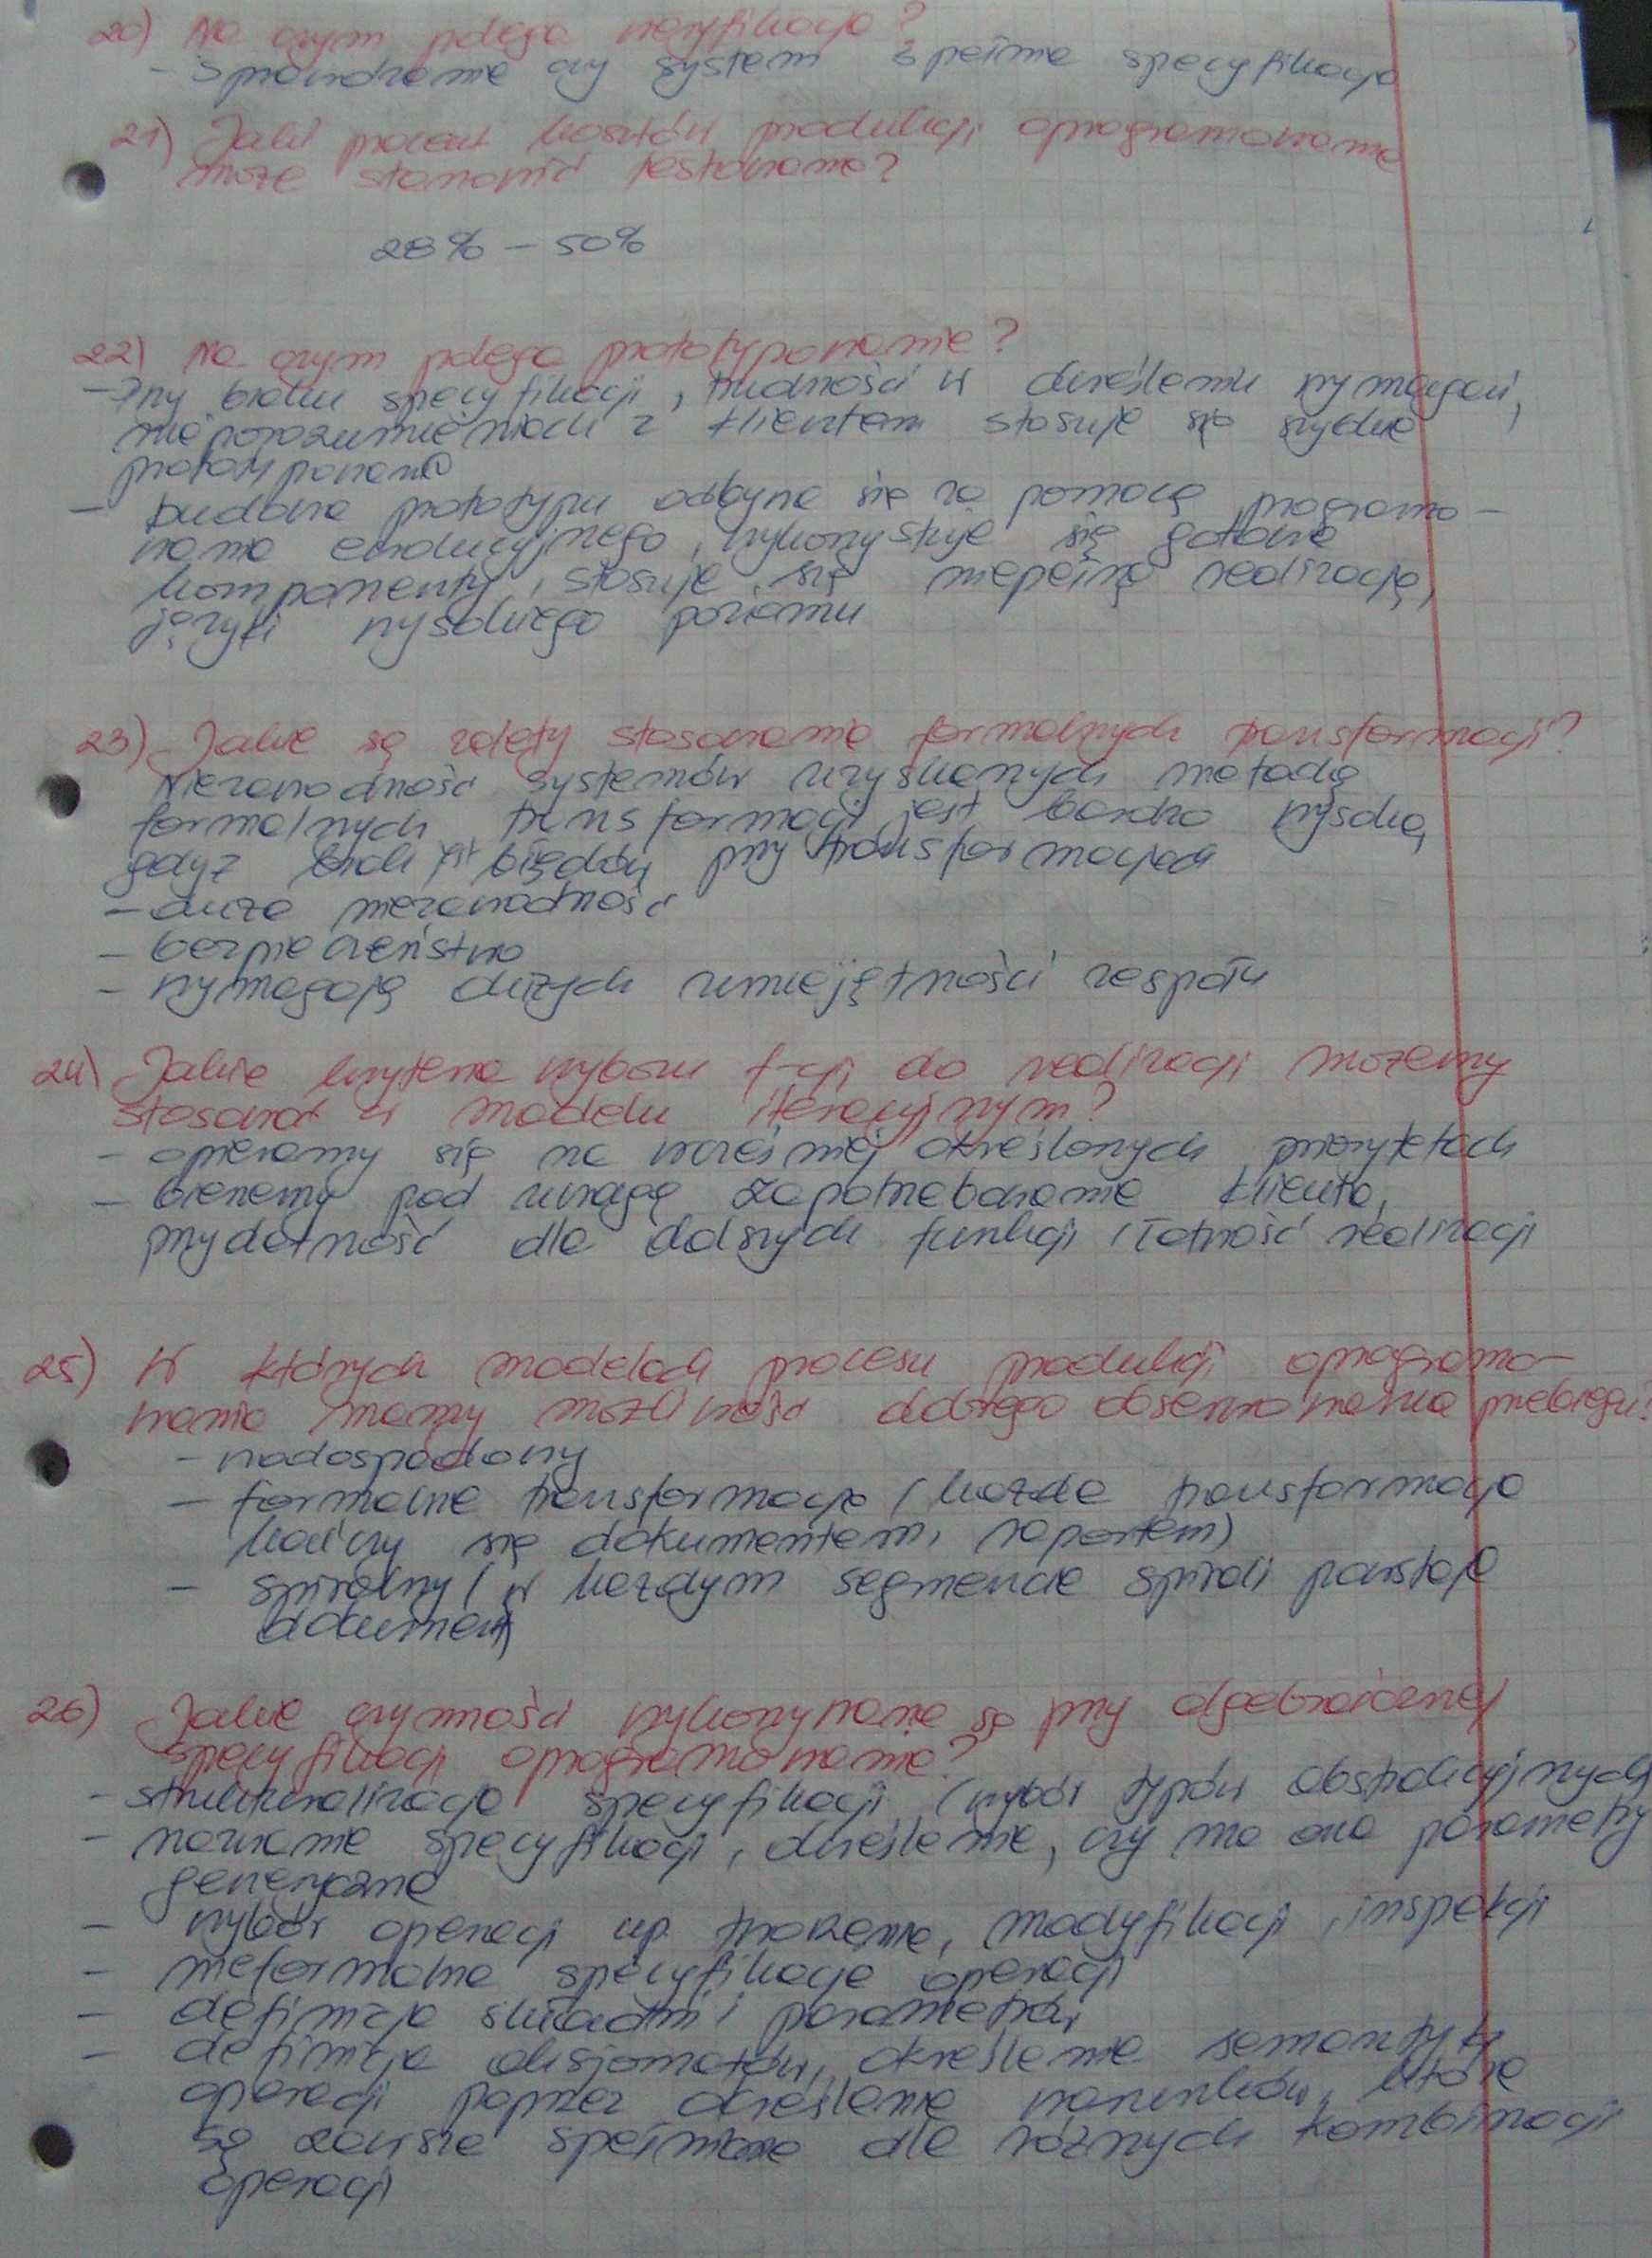 20) Na czym polega weryfikacja?
- Sprawdzanie czy system spełnia specyfikacje
21) Jaki procent kosztów produkcji oprogramowania
może stanowić testowanie?
20% - 50%
22) Na czym polega prototypowanie?
- Przy braku specyfikacji, trudności w określeniu wymagań,
nieporozumieniach z klientem stosuje się szybkie
prototypowanie
- budowa prototypu odbywa się za pomocą programo-
wania ewolucyjnego, wykorzystuje się gotowe
komponenty, stosuje się niepełną realizację,
języki wysokiego poziomu
23) Jakie są zalety stosowania formalnych transformacji?
Niezawodność systemów uzyskanych metodą
formalnych transformacji jest bardzo wysoka,
gdyż brak jest błędów przy transformacjach
- duża niezawodność
- bezpieczeństwo
- wymagają dużych umiejętności zespołu
24) Jakie kryteria wyboru f-cji do realizacji możemy
stosować w modelu iteracyjnym?
- opieramy się na wcześniej określonych priorytetach
- bierzemy pod uwagę zapotrzebowanie klienta,
przydatność dla dalszych funkcji, łatwość realizacji
25) W których modelach procesu produkcji oprogramo-
wania mamy możliwość dobrego obserwowania przebiegu?
- wodospadowy
- formalne transformacje (każda transformacja
kończy się dokumentem, raportem)
- spiralny (w każdym segmencie spirali powstaje
dokument)
26) Jakie czynności wykonywane są przy algebraicznej
specyfikacji oprogramowania?
- strukturalizacja specyfikacji (wybór typów abstrakcyjnych)
- nazwanie specyfikacji, określenie, czy ma ona parametry
generyczne
- wybór operacji np. tworzenie, modyfikacji, inspekcji
- nieformalna specyfikacja operacji
- definicja składni i parametrów
- definicja aksjomatów, określenie semantyki
operacji poprzez określenie warunków, które
są zawsze spełniane dla różnych kombinacji
operacji